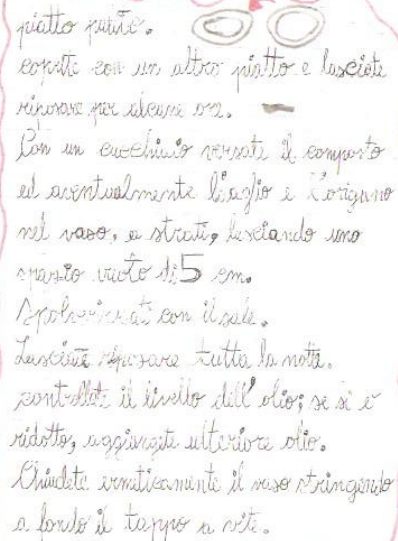 piatto piano.
coprite con un altro piatto e lasciate
riposare per alcune ore.
Con un cucchiaio versate il composto
ed aventualmente l'aglio e l'origano
nel vaso, a strati, lasciando uno
spazio vuoto di 5 cm.
Spolverizzati con il sale.
Lasciate riposare tutta la notte.
controllate il livello dell'olio; se si è
ridotto, aggiungete ulteriore olio.
Chiudete ermeticamente il vaso stringendo
a fondo il tappo a vite.